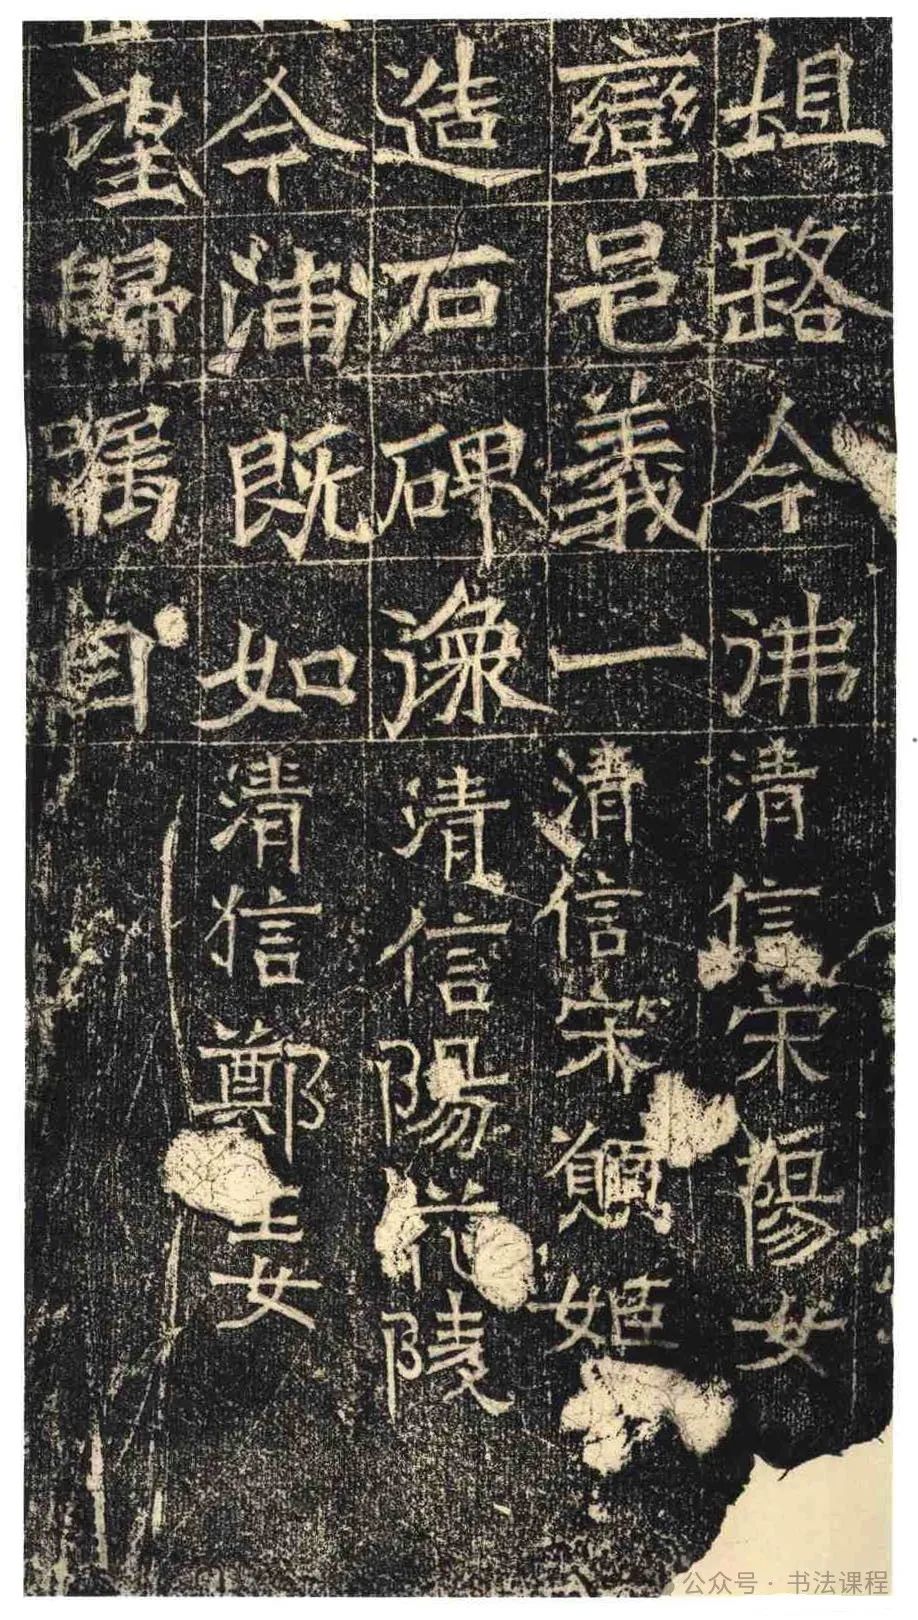 坦路今沸清信宋陽女
臺邑義一清信宋姬
造石碑像清信陽花陵
今浦既如清信鄭王女
望歸自
公众号 · 书法课程